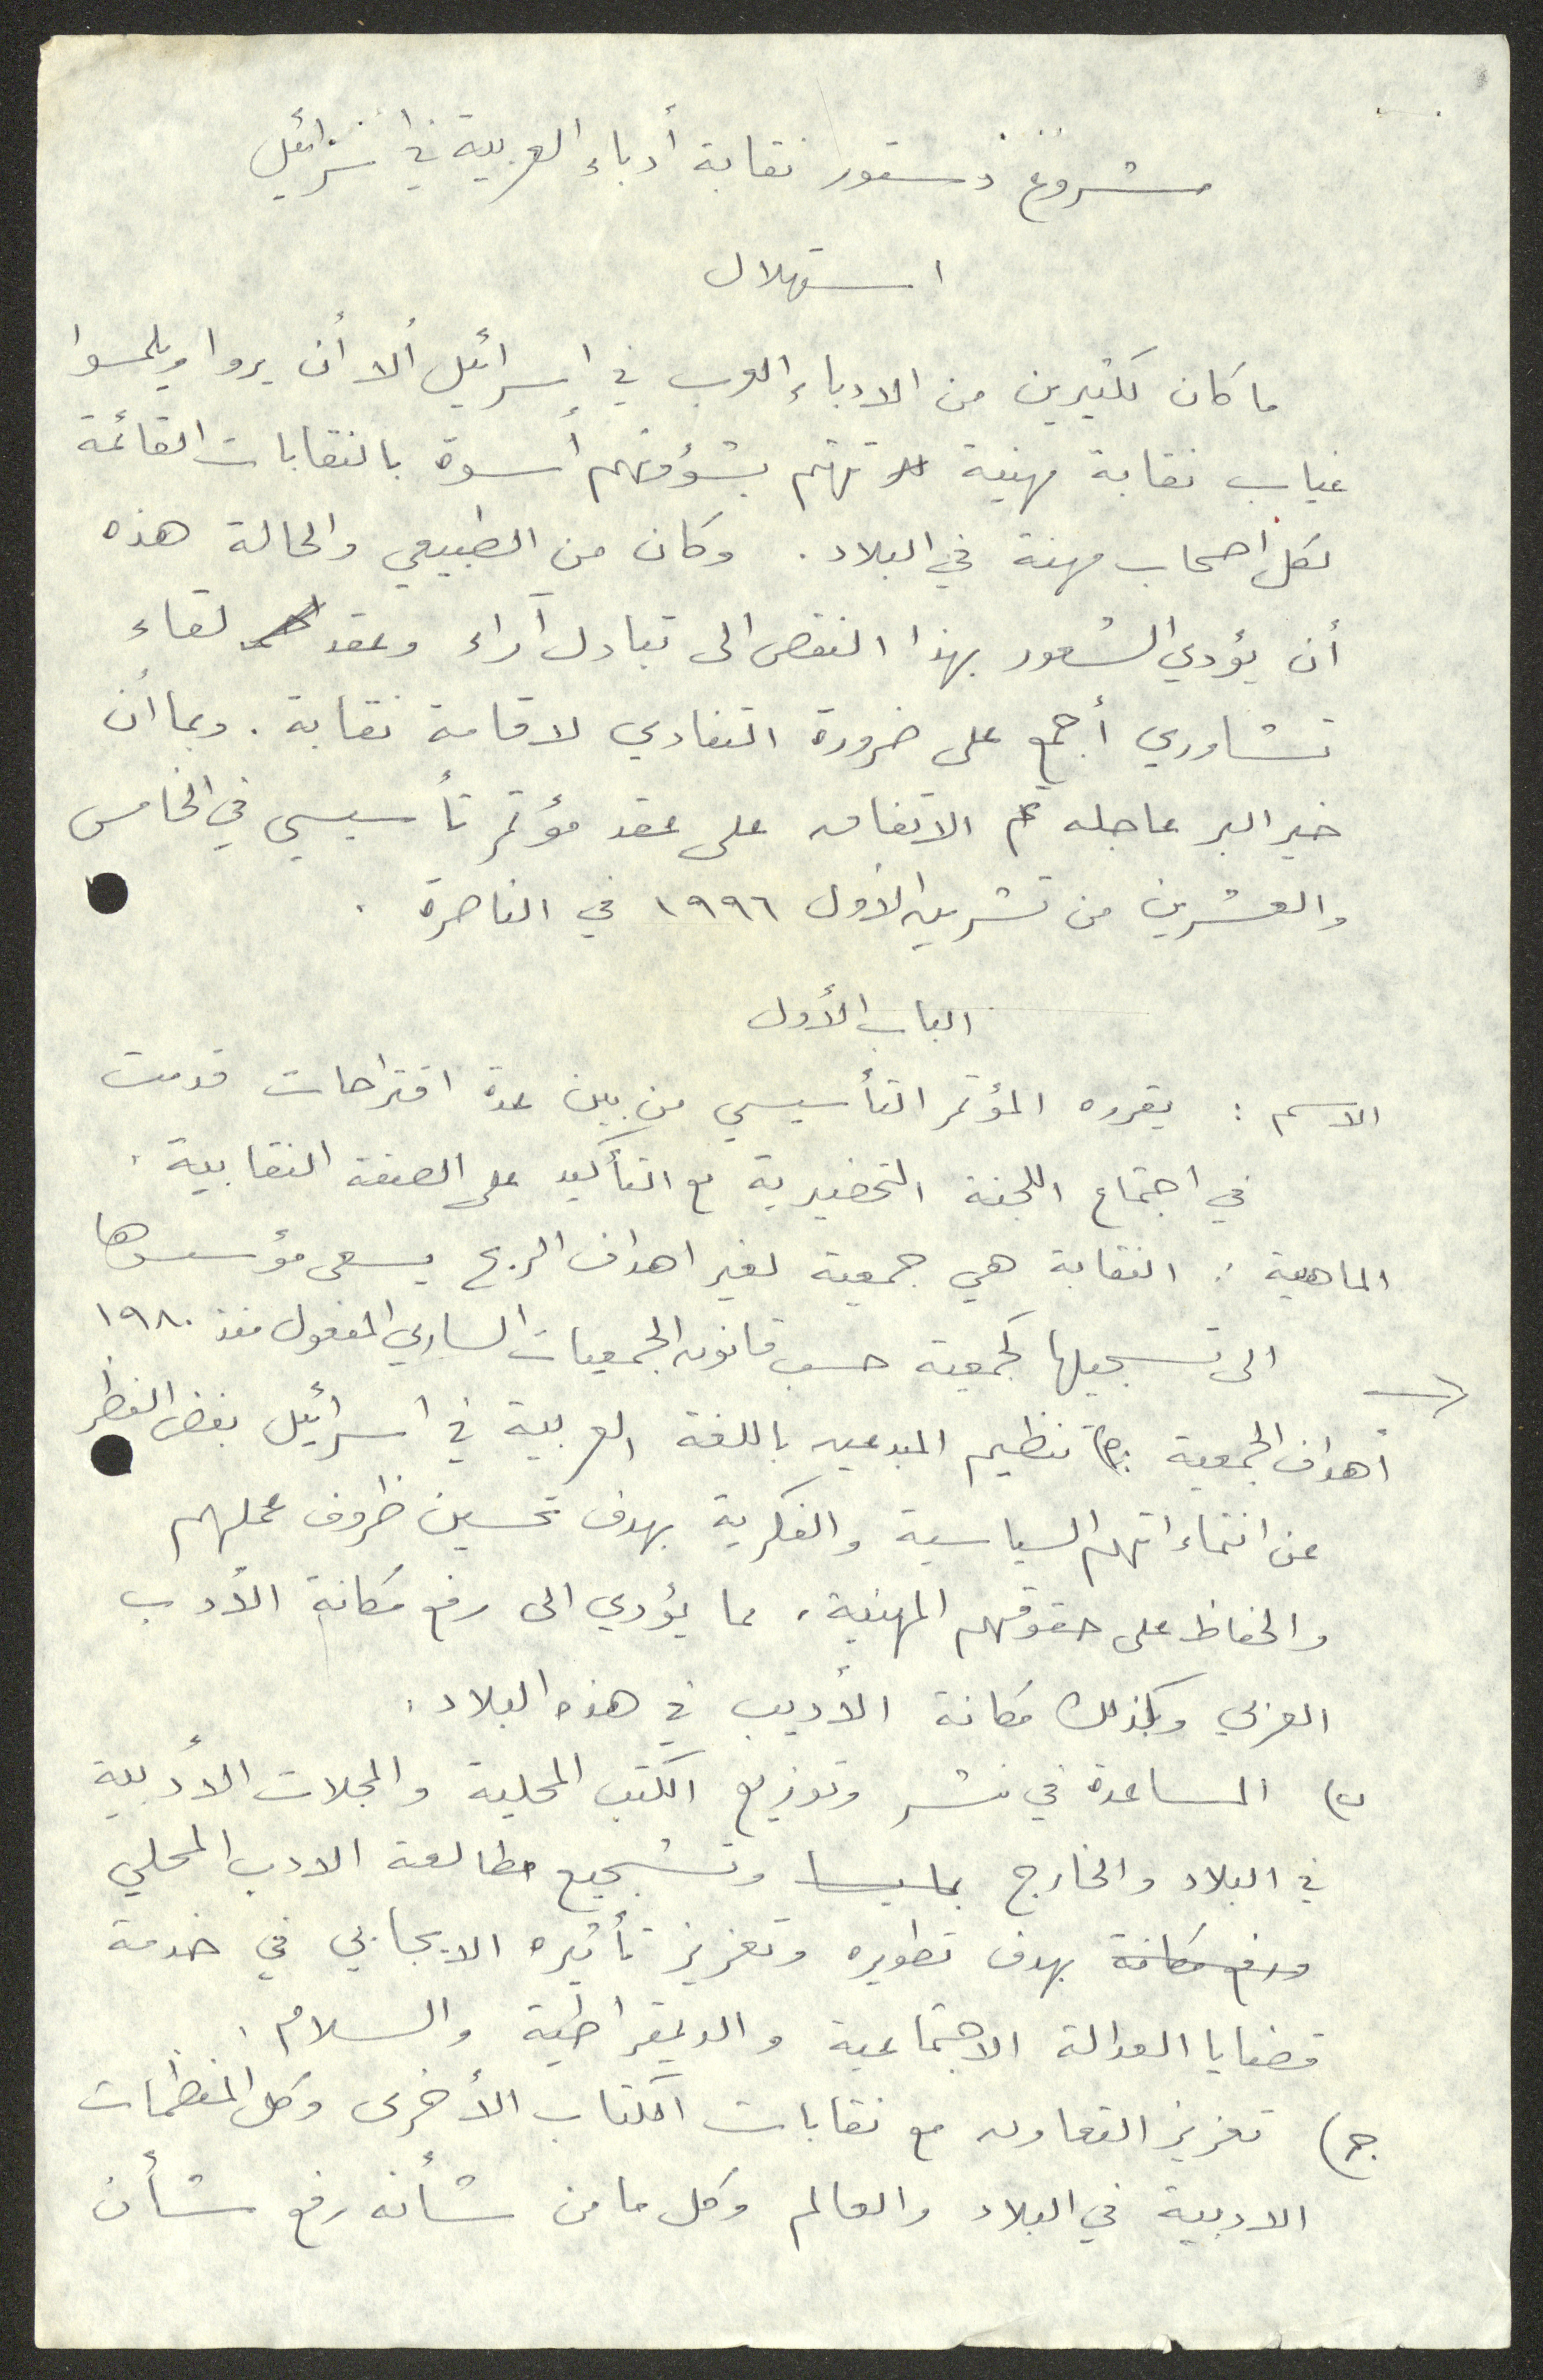 مشروع دستور نقابة أدباء العربية في اسرائيل
استهلال
ما كان لكثيرين من الادباء العرب في اسرائيل ألا أن يروا ويلمسوا
غياب نقابة مهنية تهتم بشؤونهم أسوة بالنقابات القائمة
لكل اصحاب مهنة في البلاد . وكان من الطبيعي والحالة هذه
أن يؤدي الشعور بهذا النقص الى تبادل آراء وعقد لقاء
تشاوري أجمع على ضرورة التنادي لاقامة نقابة . وبما أن
خير البر عاجله تم الاتفاق على عقد مؤتمر تأسيسي في الخامس
والعشرين من تشرين الأول ١٩٩٦ في الناصرة .
الباب الأول
الاسم : يقرره المؤتمر التأسيسي من بين عدة اقتراحات قدمت
في اجتماع اللجنة التحضيرية مع التأكيد على الصفة النقابية .
الماهية : النقابة هي جمعية لغير اهداف الربح يسعى مؤسسوها
الى تسجيلها كجمعية حسب قانون الجمعيات الساري المفعول منذ ١٩٨٠
أهداف الجمعية : تنظيم المبدعين باللغة العربية في اسرائيل بغض النظر
عن انتماءاتهم السياسية والفكرية بهدف تحسين ظروف عملهم
والحفاظ على حقوقهم المهنية ، مما يؤدي الى رفع مكانة الأدب
العربي وكذلك مكانة الأديب في هذه البلاد .
ب) المساعدة في نشر وتوزيع الكتب المحلية والمجلات الأدبية
في البلاد والخارج وتشجيع مطالعة الادب المحلي
ورفع مكانة بهدف تطويره وتعزيز تأثيره الايجابي في خدمة
قضايا العدالة الاجتماعية والديمقراطية والسلام .
ج) تعزيز التعاون مع نقابات الكتاب الأخرى وكل المنظمات
الادبية في البلاد والعالم وكل ما من شأنه رفع شأن